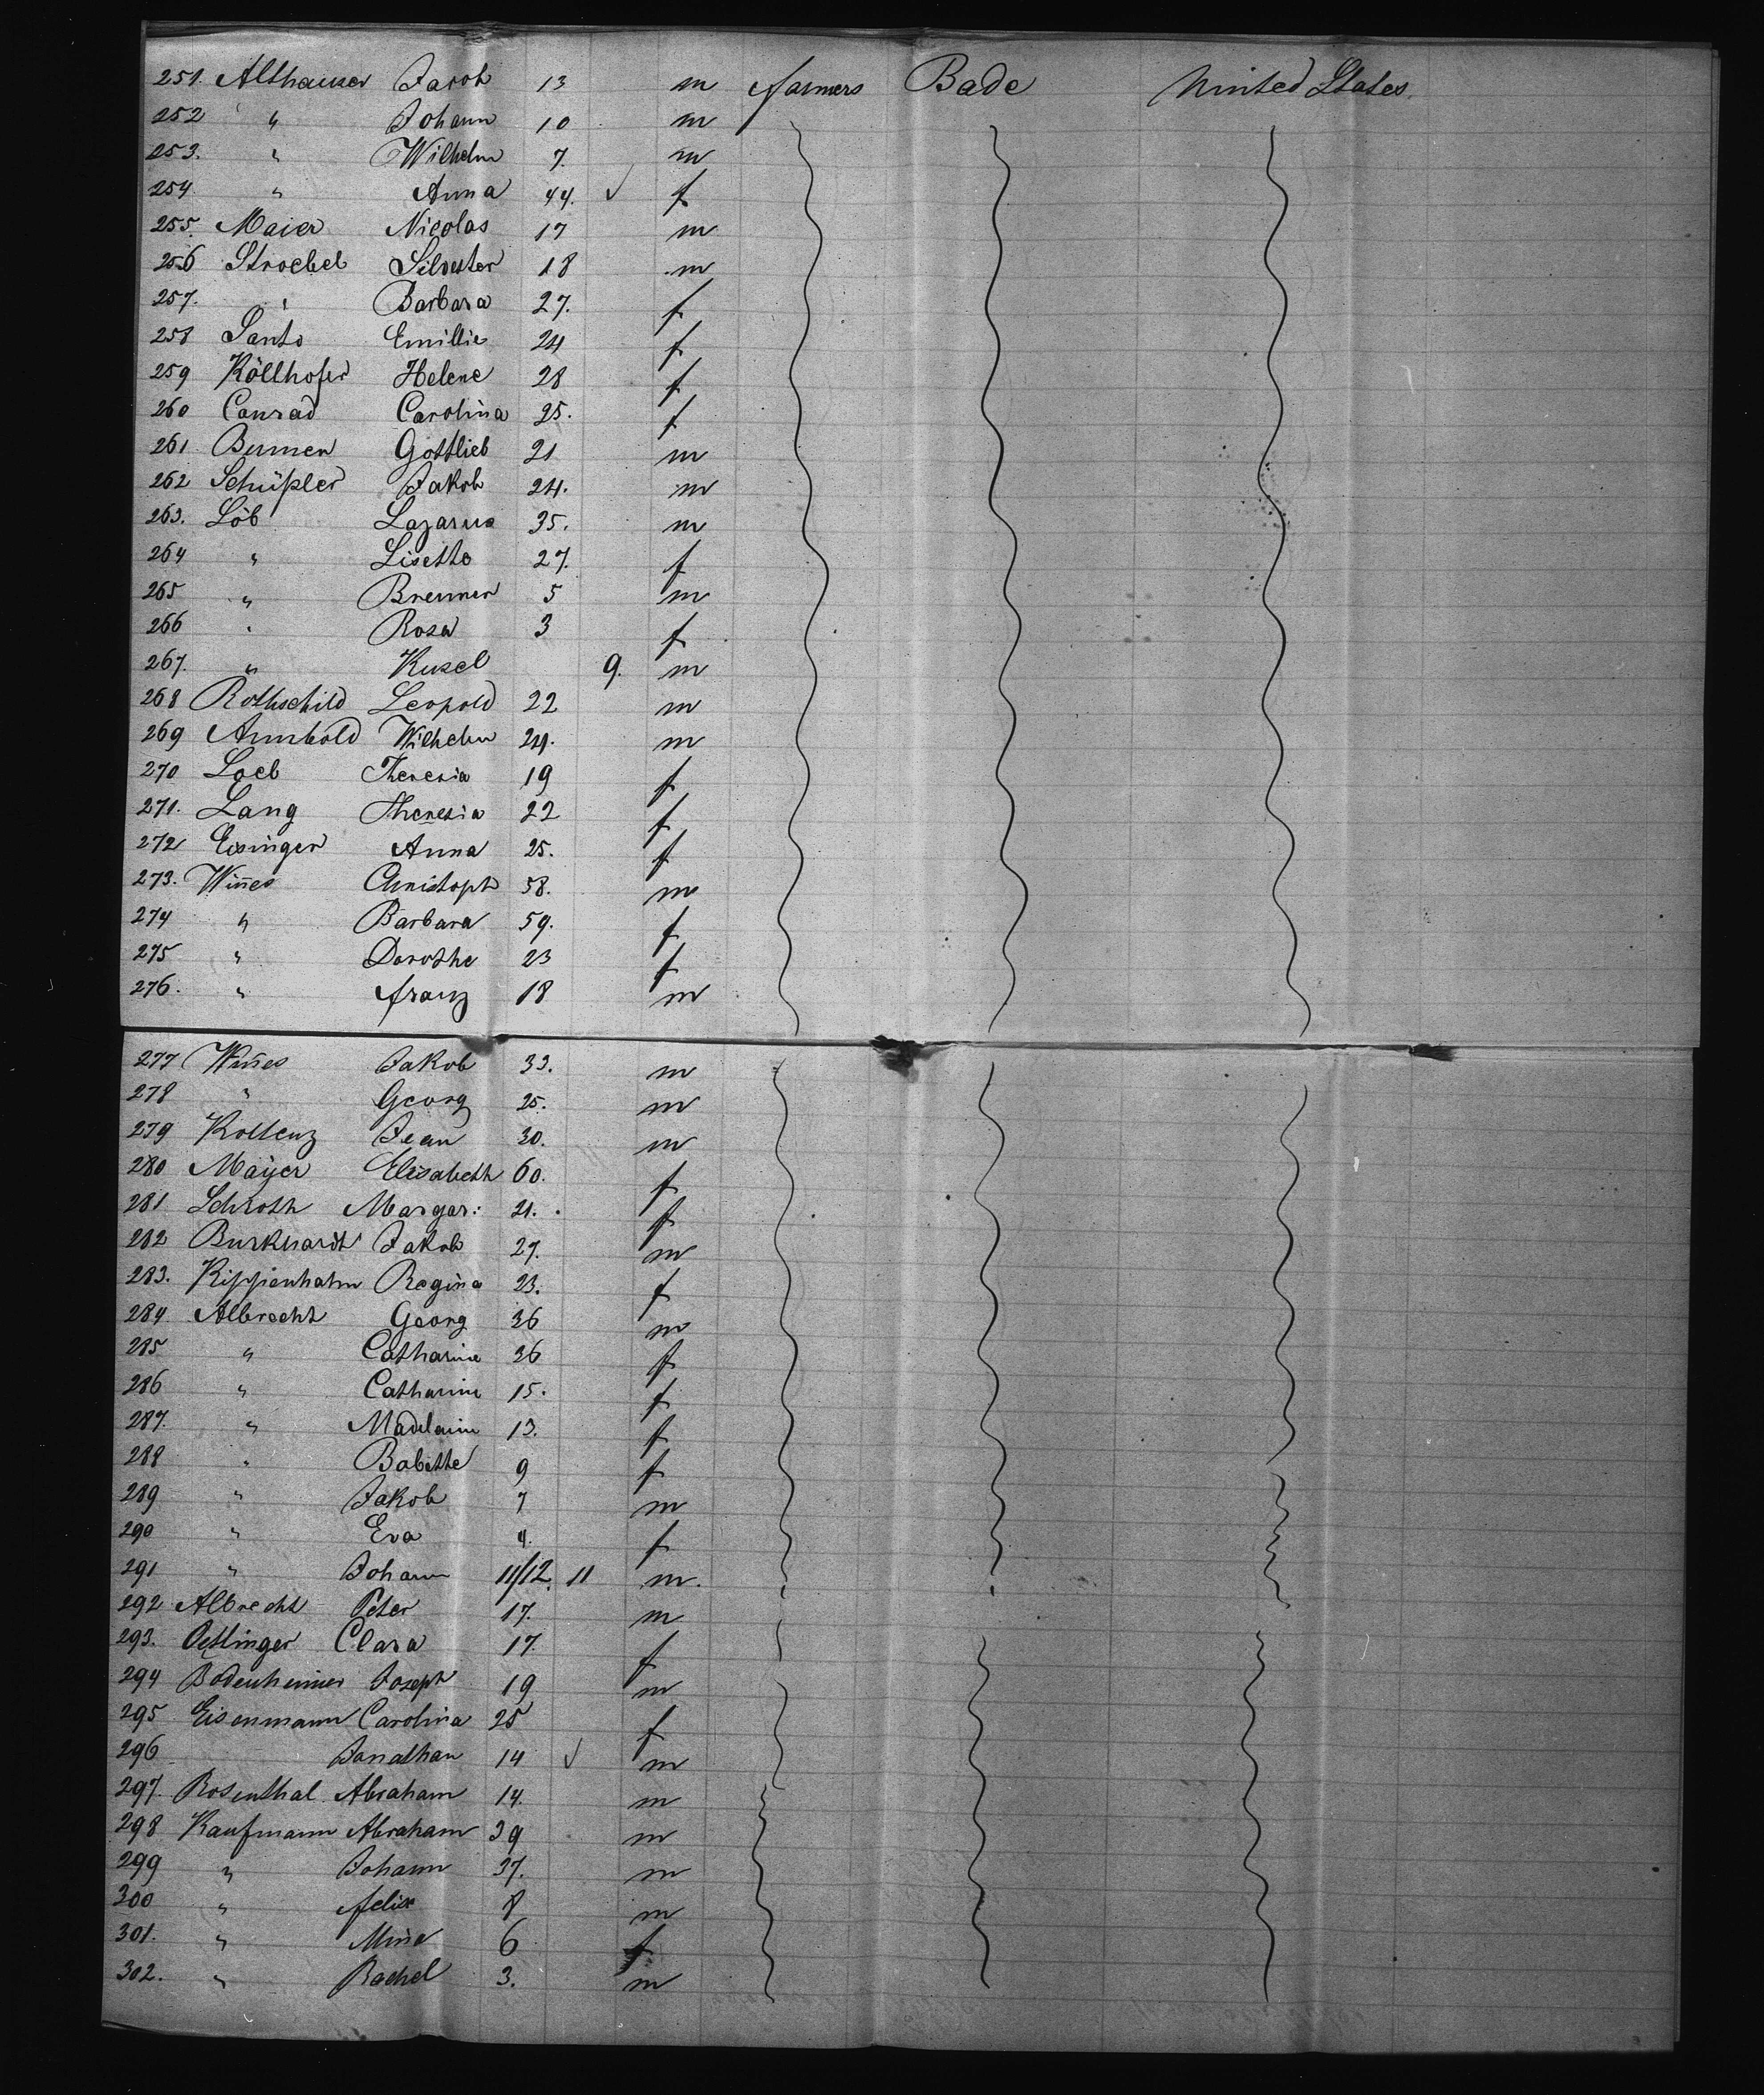 251. Althauser Jacob 13 m farmers Bade United States
252 " Johann 10 m
253. " Wilhelm 7. m
254. " Anna 44. ✓ f
255. Maier Nicolas 17 m
256 Stroebel Silvester 18 m
257. " Barbara 27. f
258 Santo Emillie 24 f
259 Köllhofer Helene 28 f
260 Conrad Carolina 25. f
261 Gottlieb 21 m
262 Schüßler Jakob 24. m
263. Löb Lazarus 35. m
264 " Lisette 27. f
265 " Brenner 5 m
266 " Rosa 3 f
267. " Kusel 9. m
268 Rothschild Leopold 22 m
269 Armbold Wilhelm 24. m
270 Loeb Theresia 19 f
271. Lang Theresia 22 f
272 Eisinger Anna 25. f
273. Win̄es Christoph 58. m
274 " Barbara 59. f
275 " Dorothe 23 f
276. " franz 18 m
277 Win̄es Jakob 33. m
278 " Georg 25. m
279 Kollenz Jean 30. m
280 Mayer Elisabeth 60. f
281 Schroth Margar: 21. f
282 Burkhardt Jakob 27. m
283. Kippenhahn Regina 23. f
284 Albrecht Georg 36 m
285 " Catharine 36 f
286 " Catharine 15. f
287. " Madelaine 13. f
288 " Babette 9 f
289 " Jakob 7 m
290 " Eva 4. f
291 " Johann 11/12. 11 m.
292 Albrecht Peter 17. m
293. Oettinger Clara 17. f
294 Bodenheimer Joseph 19 m
295 Eisenmann Carolina 25 f
296 Jonathan 14 ✓ m
297. Rosenthal Abraham 14. m
298 Kaufmann Abraham 39 m
299 " Johann 37. m
300 " felix 8 m
301. " Mina 6 f
302. " Rachel 3. m